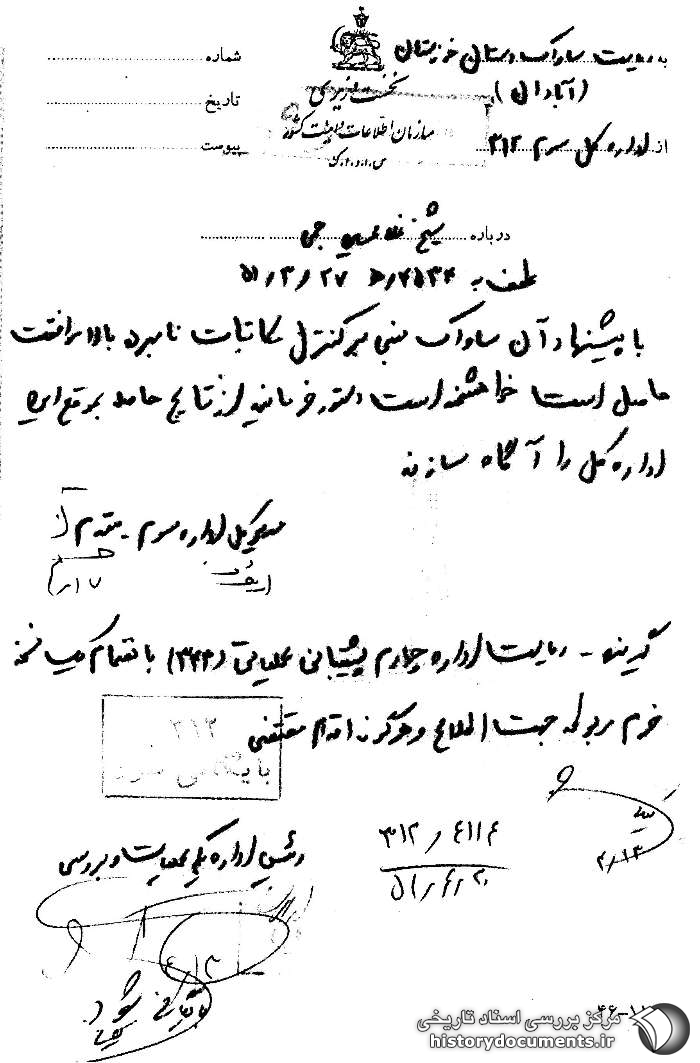 به ریاست ساواک استان خوزستان
(آبادان)
از اداره کل سوم ۳۱۲
نخست وزیری
سازمان اطلاعات و امنیت کشور
س.ا.و.ا.ک
شماره
تاریخ
پیوست
درباره شیخ غلامحسین جمی
عطف به ۵۱/۳/۲۷
با پیشنهاد آن ساواک مبنی بر کنترل مکاتبات نامبرده بالا موافقت
حاصل است خواهشمند است دستور فرمایید از نتایج حاصله بموقع این
اداره کل را آگاه سازند
مدیرکل اداره سوم . مقدم
از طرف
گیرنده - ریاست اداره چهارم پشتیبانی عملیاتی (۳۴۴) با انضمام یک نسخه
فرم مربوطه جهت اطلاع و هرگونه اقدام مقتضی
۳۱۲
بایگانی شود
رئیس اداره یکم عملیات و بررسی
۳۱۲/۴۱۱۴
۵۱/۴/۲۰
۴/۱۳
بایگانی شود
مرکز بررسی اسناد تاریخی
historydocuments.ir